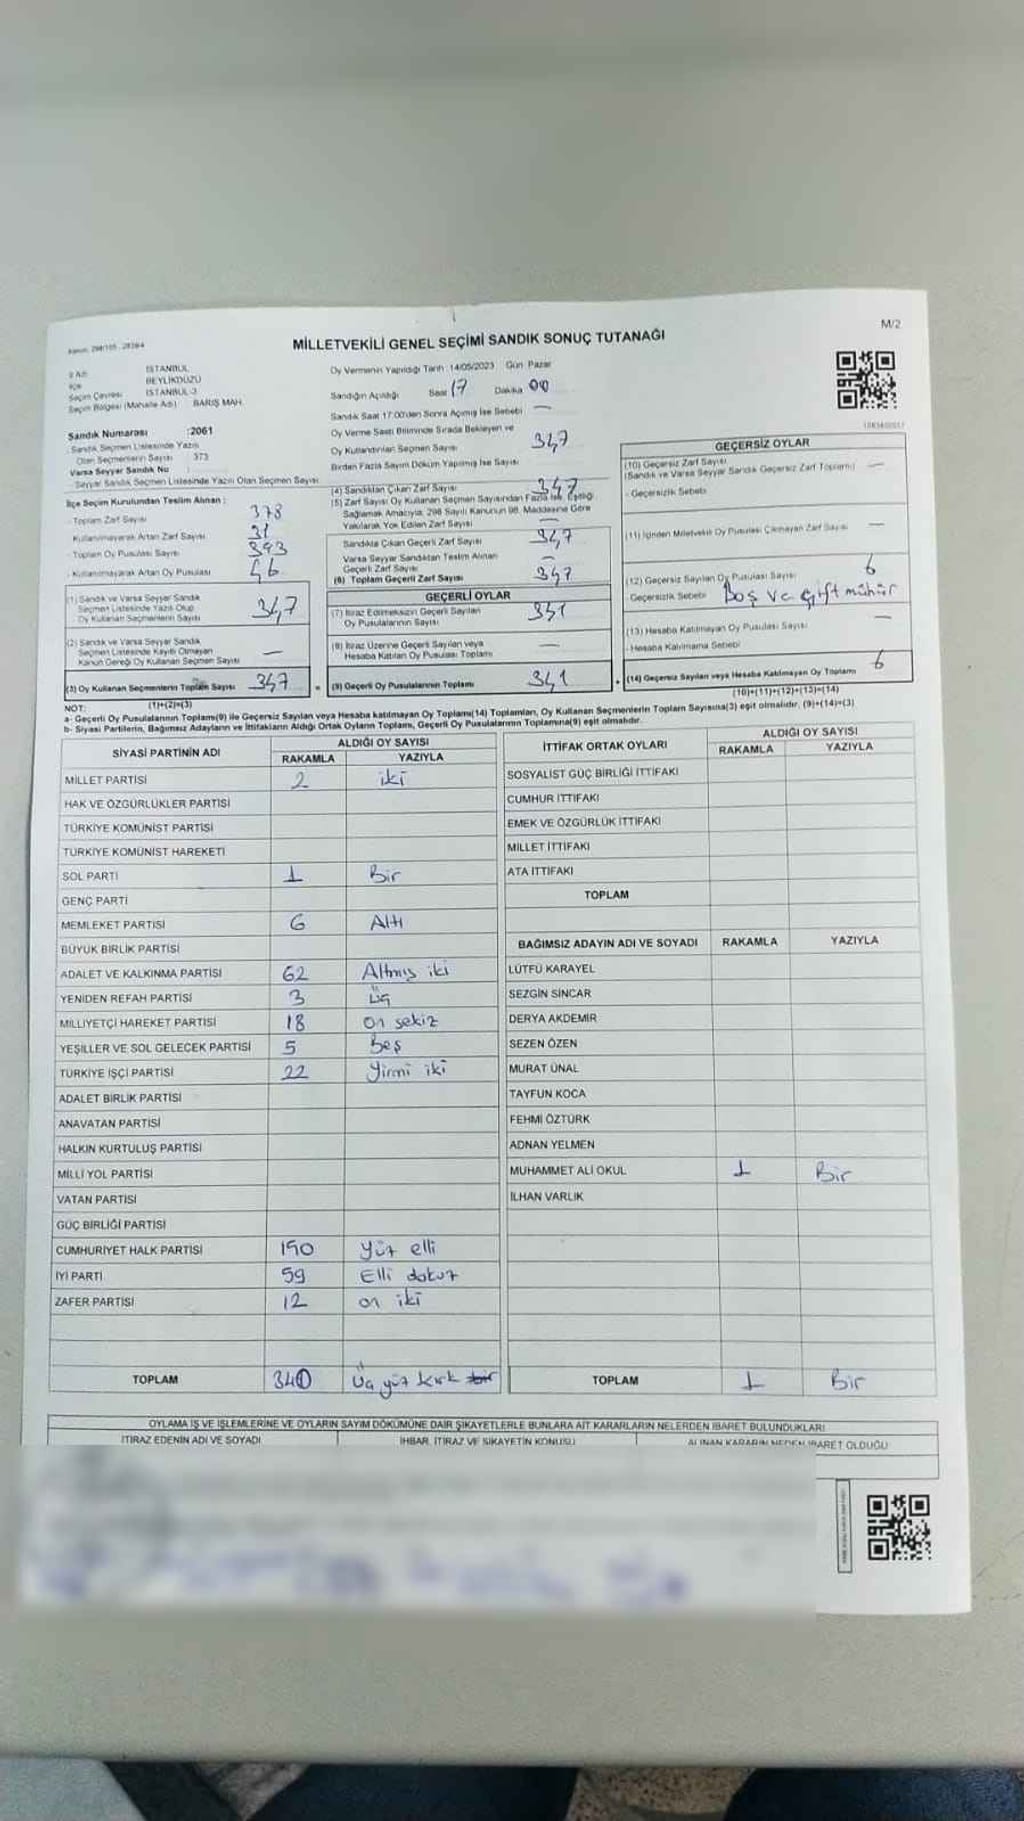 M/2
MİLLETVEKİLİ GENEL SEÇİMİ SANDIK SONUÇ TUTANAĞI
İl Adı İSTANBUL
İlçe BEYLİKDÜZÜ
Seçim Çevresi İSTANBUL-3
Seçim Bölgesi (Mahalle Adı) BARIŞ MAH.
Sandık Numarası :2061
Sandık Seçmen Listesinde Yazılı
Olan Seçmenlerin Sayısı 373
Varsa Seyyar Sandık No :
Seyyar Sandık Seçmen Listesinde Yazılı Olan Seçmen Sayısı
İlçe Seçim Kurulundan Teslim Alınan :
- Toplam Zarf Sayısı 378
Kullanılmayarak Artan Zarf Sayısı 31
- Toplam Oy Pusulası Sayısı 393
- Kullanılmayarak Artan Oy Pusulası 46
(1) Sandık ve Varsa Seyyar Sandık
Seçmen Listesinde Yazılı Olup
Oy Kullanan Seçmenlerin Sayısı 347
(2) Sandık ve Varsa Seyyar Sandık
Seçmen Listesinde Kayıtlı Olmayan
Kanun Gereği Oy Kullanan Seçmen Sayısı —
(3) Oy Kullanan Seçmenlerin Toplam Sayısı 347
(1)+(2)=(3)
Oy Vermenin Yapıldığı Tarih :14/05/2023 Gün Pazar
Sandığın Açıldığı Saat 17 Dakika 00
Sandık Saat 17:00'den Sonra Açılmış İse Sebebi —
Oy Verme Saati Bitiminde Sırada Bekleyen ve
Oy Kullandırılan Seçmen Sayısı 347
Birden Fazla Sayım Döküm Yapılmış İse Sayısı
(4) Sandıktan Çıkan Zarf Sayısı 347
(5) Zarf Sayısı Oy Kullanan Seçmen Sayısından Fazla ise, Eşitliği
Sağlamak Amacıyla, 298 Sayılı Kanunun 98. Maddesine Göre
Yakılarak Yok Edilen Zarf Sayısı
Sandıkta Çıkan Geçerli Zarf Sayısı 347
Varsa Seyyar Sandıktan Teslim Alınan
Geçerli Zarf Sayısı —
(6) Toplam Geçerli Zarf Sayısı 347
GEÇERLİ OYLAR
(7) İtiraz Edilmeksizin Geçerli Sayılan
Oy Pusulalarının Sayısı 341
(8) İtiraz Üzerine Geçerli Sayılan veya
Hesaba Katılan Oy Pusulası Toplamı —
(9) Geçerli Oy Pusulalarının Toplamı 341
GEÇERSİZ OYLAR
(10) Geçersiz Zarf Sayısı
(Sandık ve Varsa Seyyar Sandık Geçersiz Zarf Toplamı) —
- Geçersizlik Sebebi
(11) İçinden Milletvekili Oy Pusulası Çıkmayan Zarf Sayısı —
(12) Geçersiz Sayılan Oy Pusulası Sayısı 6
- Geçersizlik Sebebi Boş ve çift mühür
(13) Hesaba Katılmayan Oy Pusulası Sayısı —
- Hesaba Katılmama Sebebi
(14) Geçersiz Sayılan veya Hesaba Katılmayan Oy Toplamı 6
(10)+(11)+(12)+(13)=(14)
NOT:
a- Geçerli Oy Pusulalarının Toplamı(9) ile Geçersiz Sayılan veya Hesaba katılmayan Oy Toplamı(14) Toplamları, Oy Kullanan Seçmenlerin Toplam Sayısına(3) eşit olmalıdır. (9)+(14)=(3)
b- Siyasi Partilerin, Bağımsız Adayların ve İttifakların Aldığı Ortak Oyların Toplamı, Geçerli Oy Pusulalarının Toplamına(9) eşit olmalıdır.
SİYASİ PARTİNİN ADI ALDIĞI OY SAYISI
RAKAMLA YAZIYLA
MİLLET PARTİSİ 2 iki
HAK VE ÖZGÜRLÜKLER PARTİSİ
TÜRKİYE KOMÜNİST PARTİSİ
TÜRKİYE KOMÜNİST HAREKETİ
SOL PARTİ 1 Bir
GENÇ PARTİ
MEMLEKET PARTİSİ 6 Altı
BÜYÜK BİRLİK PARTİSİ
ADALET VE KALKINMA PARTİSİ 62 Altmış iki
YENİDEN REFAH PARTİSİ 3 Üç
MİLLİYETÇİ HAREKET PARTİSİ 18 on sekiz
YEŞİLLER VE SOL GELECEK PARTİSİ 5 Beş
TÜRKİYE İŞÇİ PARTİSİ 22 Yirmi iki
ADALET BİRLİK PARTİSİ
ANAVATAN PARTİSİ
HALKIN KURTULUŞ PARTİSİ
MİLLİ YOL PARTİSİ
VATAN PARTİSİ
GÜÇ BİRLİĞİ PARTİSİ
CUMHURİYET HALK PARTİSİ 150 Yüz elli
İYİ PARTİ 59 Elli dokuz
ZAFER PARTİSİ 12 on iki
TOPLAM 340 Üç yüz kırk bir
İTTİFAK ORTAK OYLARI ALDIĞI OY SAYISI
RAKAMLA YAZIYLA
SOSYALİST GÜÇ BİRLİĞİ İTTİFAKI
CUMHUR İTTİFAKI
EMEK VE ÖZGÜRLÜK İTTİFAKI
MİLLET İTTİFAKI
ATA İTTİFAKI
TOPLAM
BAĞIMSIZ ADAYIN ADI VE SOYADI RAKAMLA YAZIYLA
LÜTFÜ KARAYEL
SEZGİN SİNCAR
DERYA AKDEMİR
SEZEN ÖZEN
MURAT ÜNAL
TAYFUN KOCA
FEHMİ ÖZTÜRK
ADNAN YELMEN
MUHAMMET ALİ OKUL 1 Bir
İLHAN VARLIK
TOPLAM 1 Bir
OYLAMA İŞ VE İŞLEMLERİNE VE OYLARIN SAYIM DÖKÜMÜNE DAİR ŞİKAYETLERLE BUNLARA AİT KARARLARIN NELERDEN İBARET BULUNDUKLARI
İTİRAZ EDENİN ADI VE SOYADI İHBAR, İTİRAZ VE ŞİKAYETİN KONUSU ALINAN KARARIN NEDEN İBARET OLDUĞU